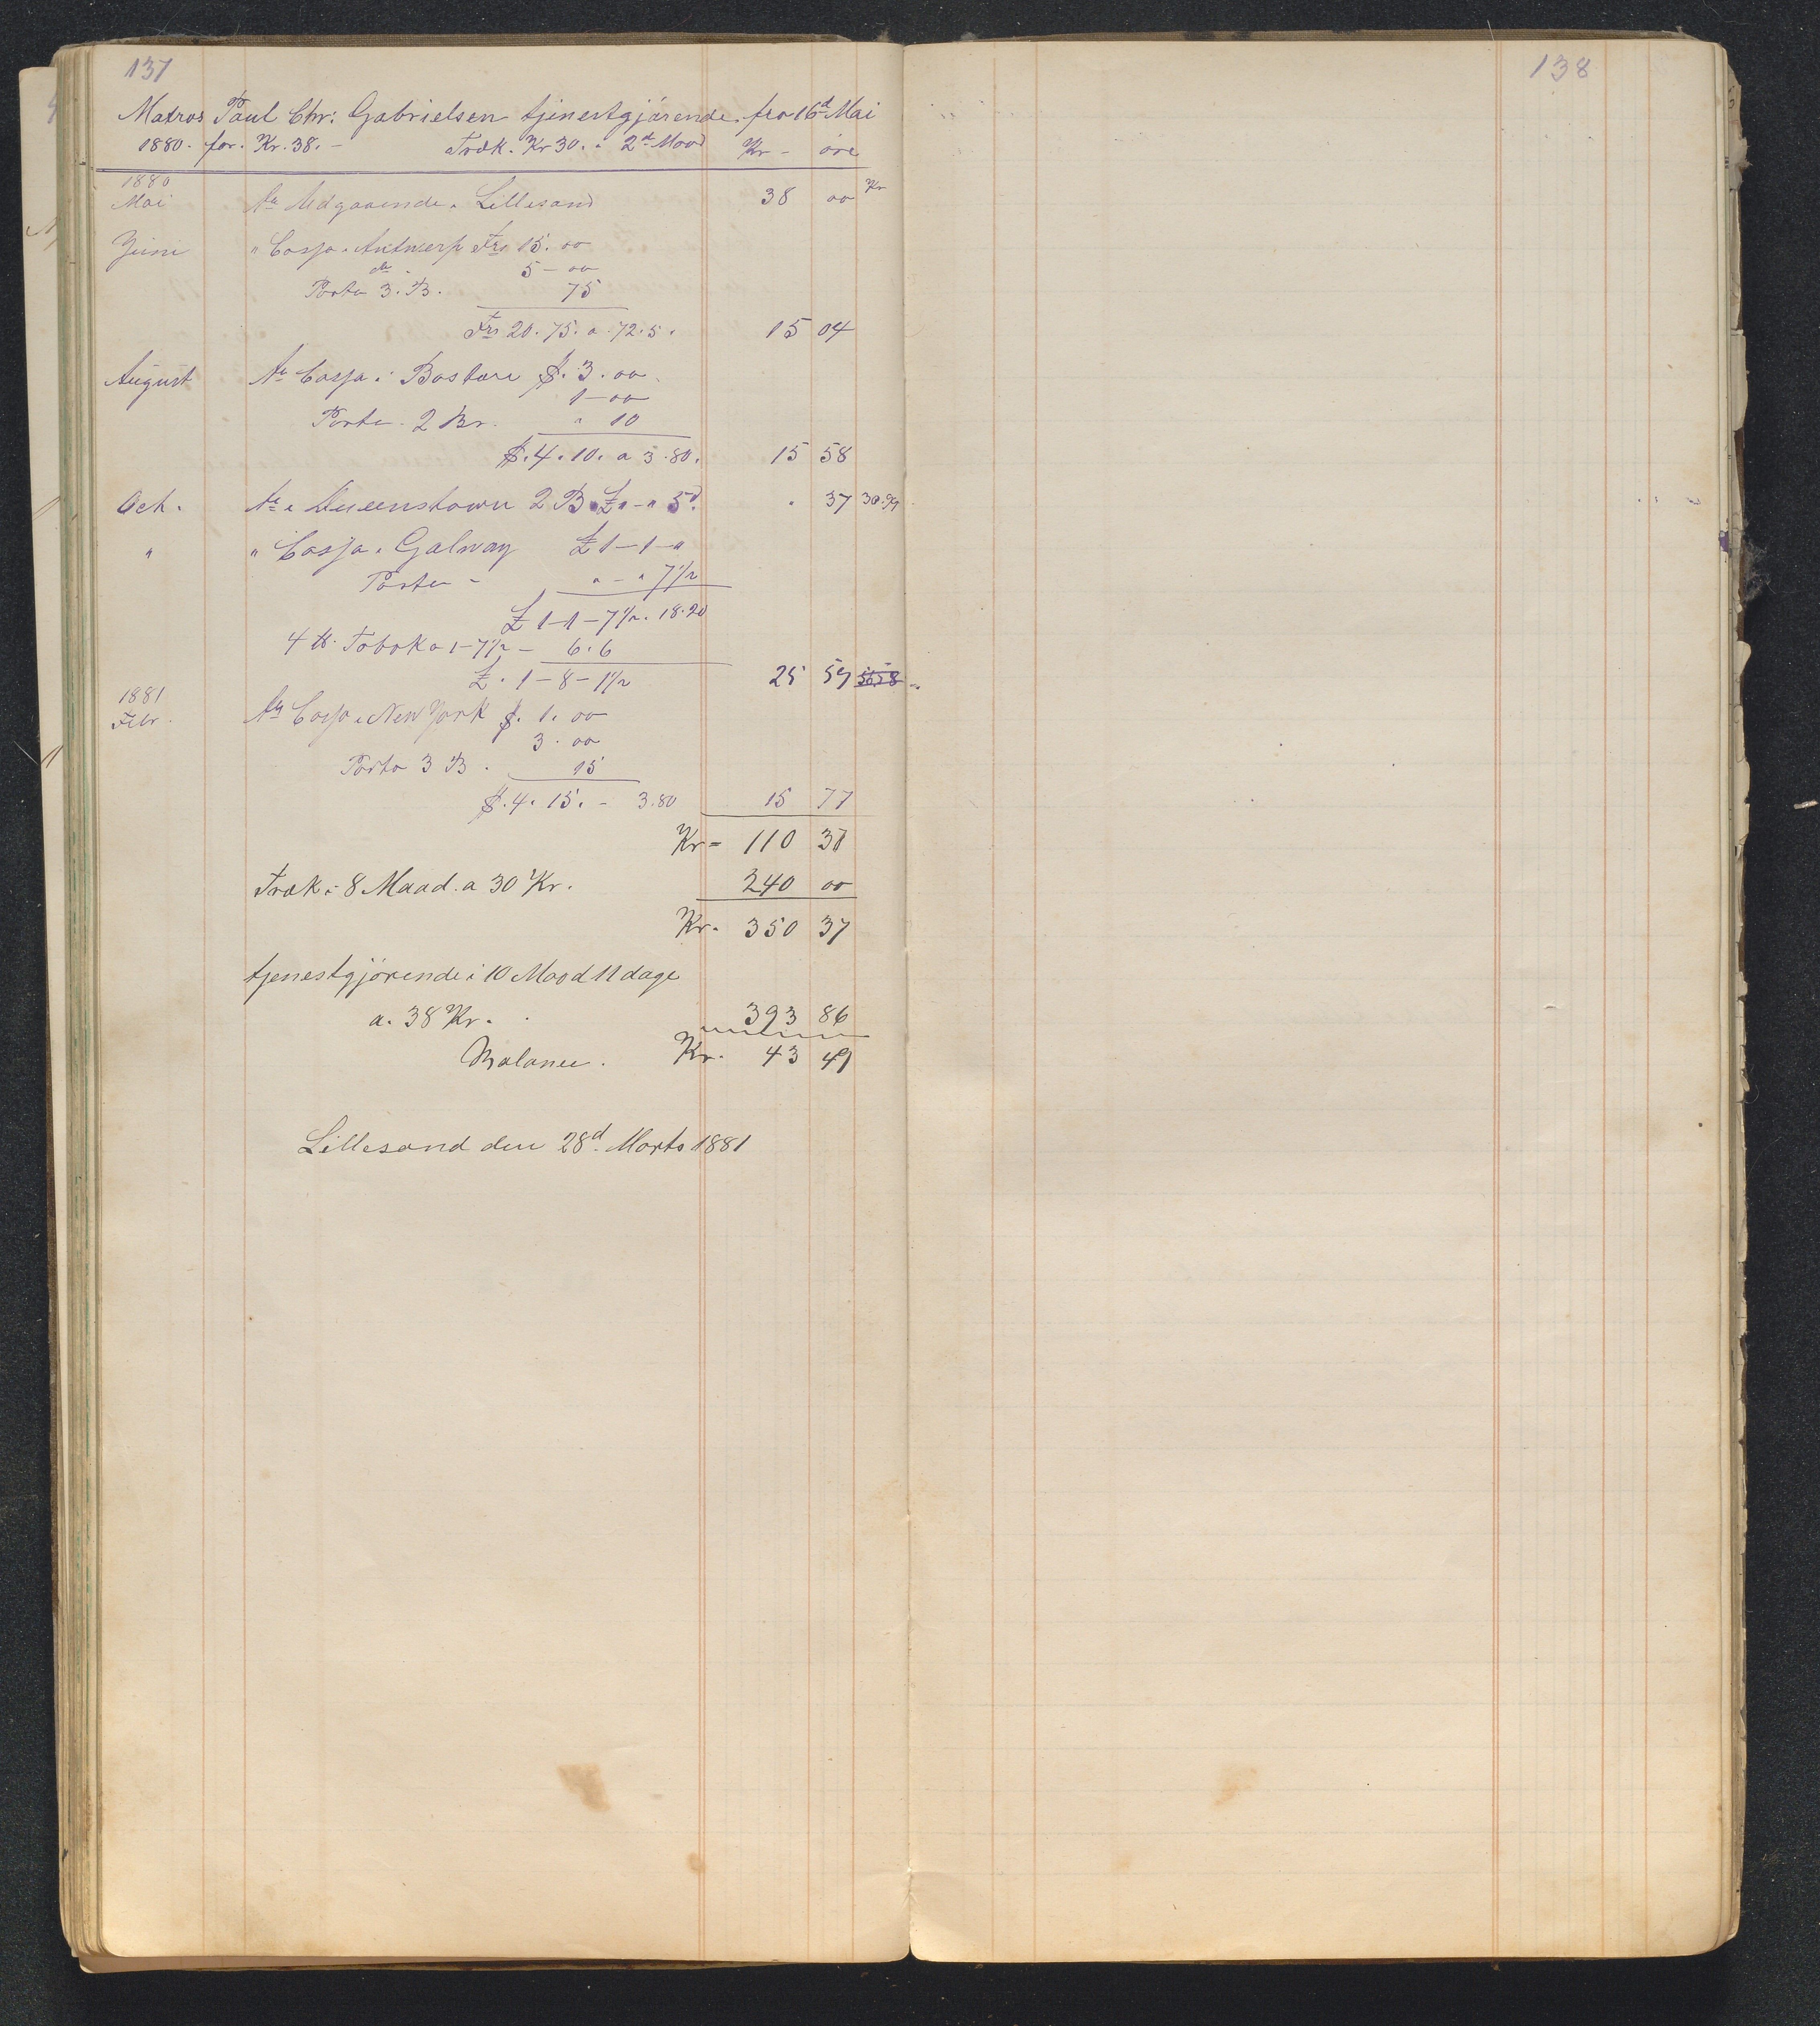 137
Matros Paul Chr: Gabrielsen tjenestgjörende fra 16d Mai
1880. for. Kr. 38. - Træk. Kr 30. 2d Maad Kr - öre
1880
Mai An Udgaaende i Lillesand 38 00 Kr
Juni " Cassa i Antwerp Frs 15. 00
do 5 - 00
Porto 3. B. 75
Frs 20. 75. a 72. 5. 15 04
August An Cassa i Boston $. 3. 00
1 - 00
Porto - 2 Br. " 10
$. 4. 10. a 3. 80. 15 58
Oct. An i Queenstown 2 B. £ " - " 5d. . 37
" " Cassa i Galway £ 1 - 1 - "
Porto - " - " 7 1/2
£ 1 - 1 - 7 1/2. 18.20
4 lb. Tobak a 1 - 7 1/2 - 6. 6
£. 1 - 8 - 1 1/2 25 59
1881
Febr. An Cassa i New York $. 1. 00
3. 00
Porto 3 B. 15
$. 4. 15. - 3.80 15 77
Kr = 110 37
Træk i 8 Maad. a 30 Kr. 240 00
Kr. 350 37
tjenestgjörende i 10 Maad 11 dage
a. 38 Kr. 393 86
Balance. Kr. 43 49
Lillesand den 28d. Marts 1881
138